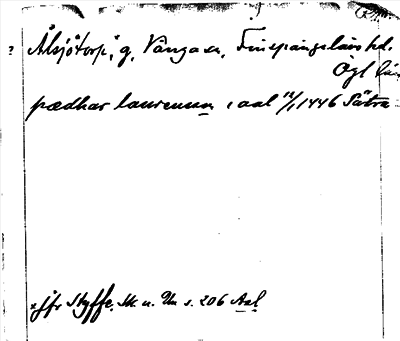 ? Ålsjötorp, g, Vånga sn, Finspångaläns hd.
Ögl län
pædhar laurenssa i aal 12/1 1446 Sätra
x jfr Styffe, Sk. u. Un s. 206 Aal